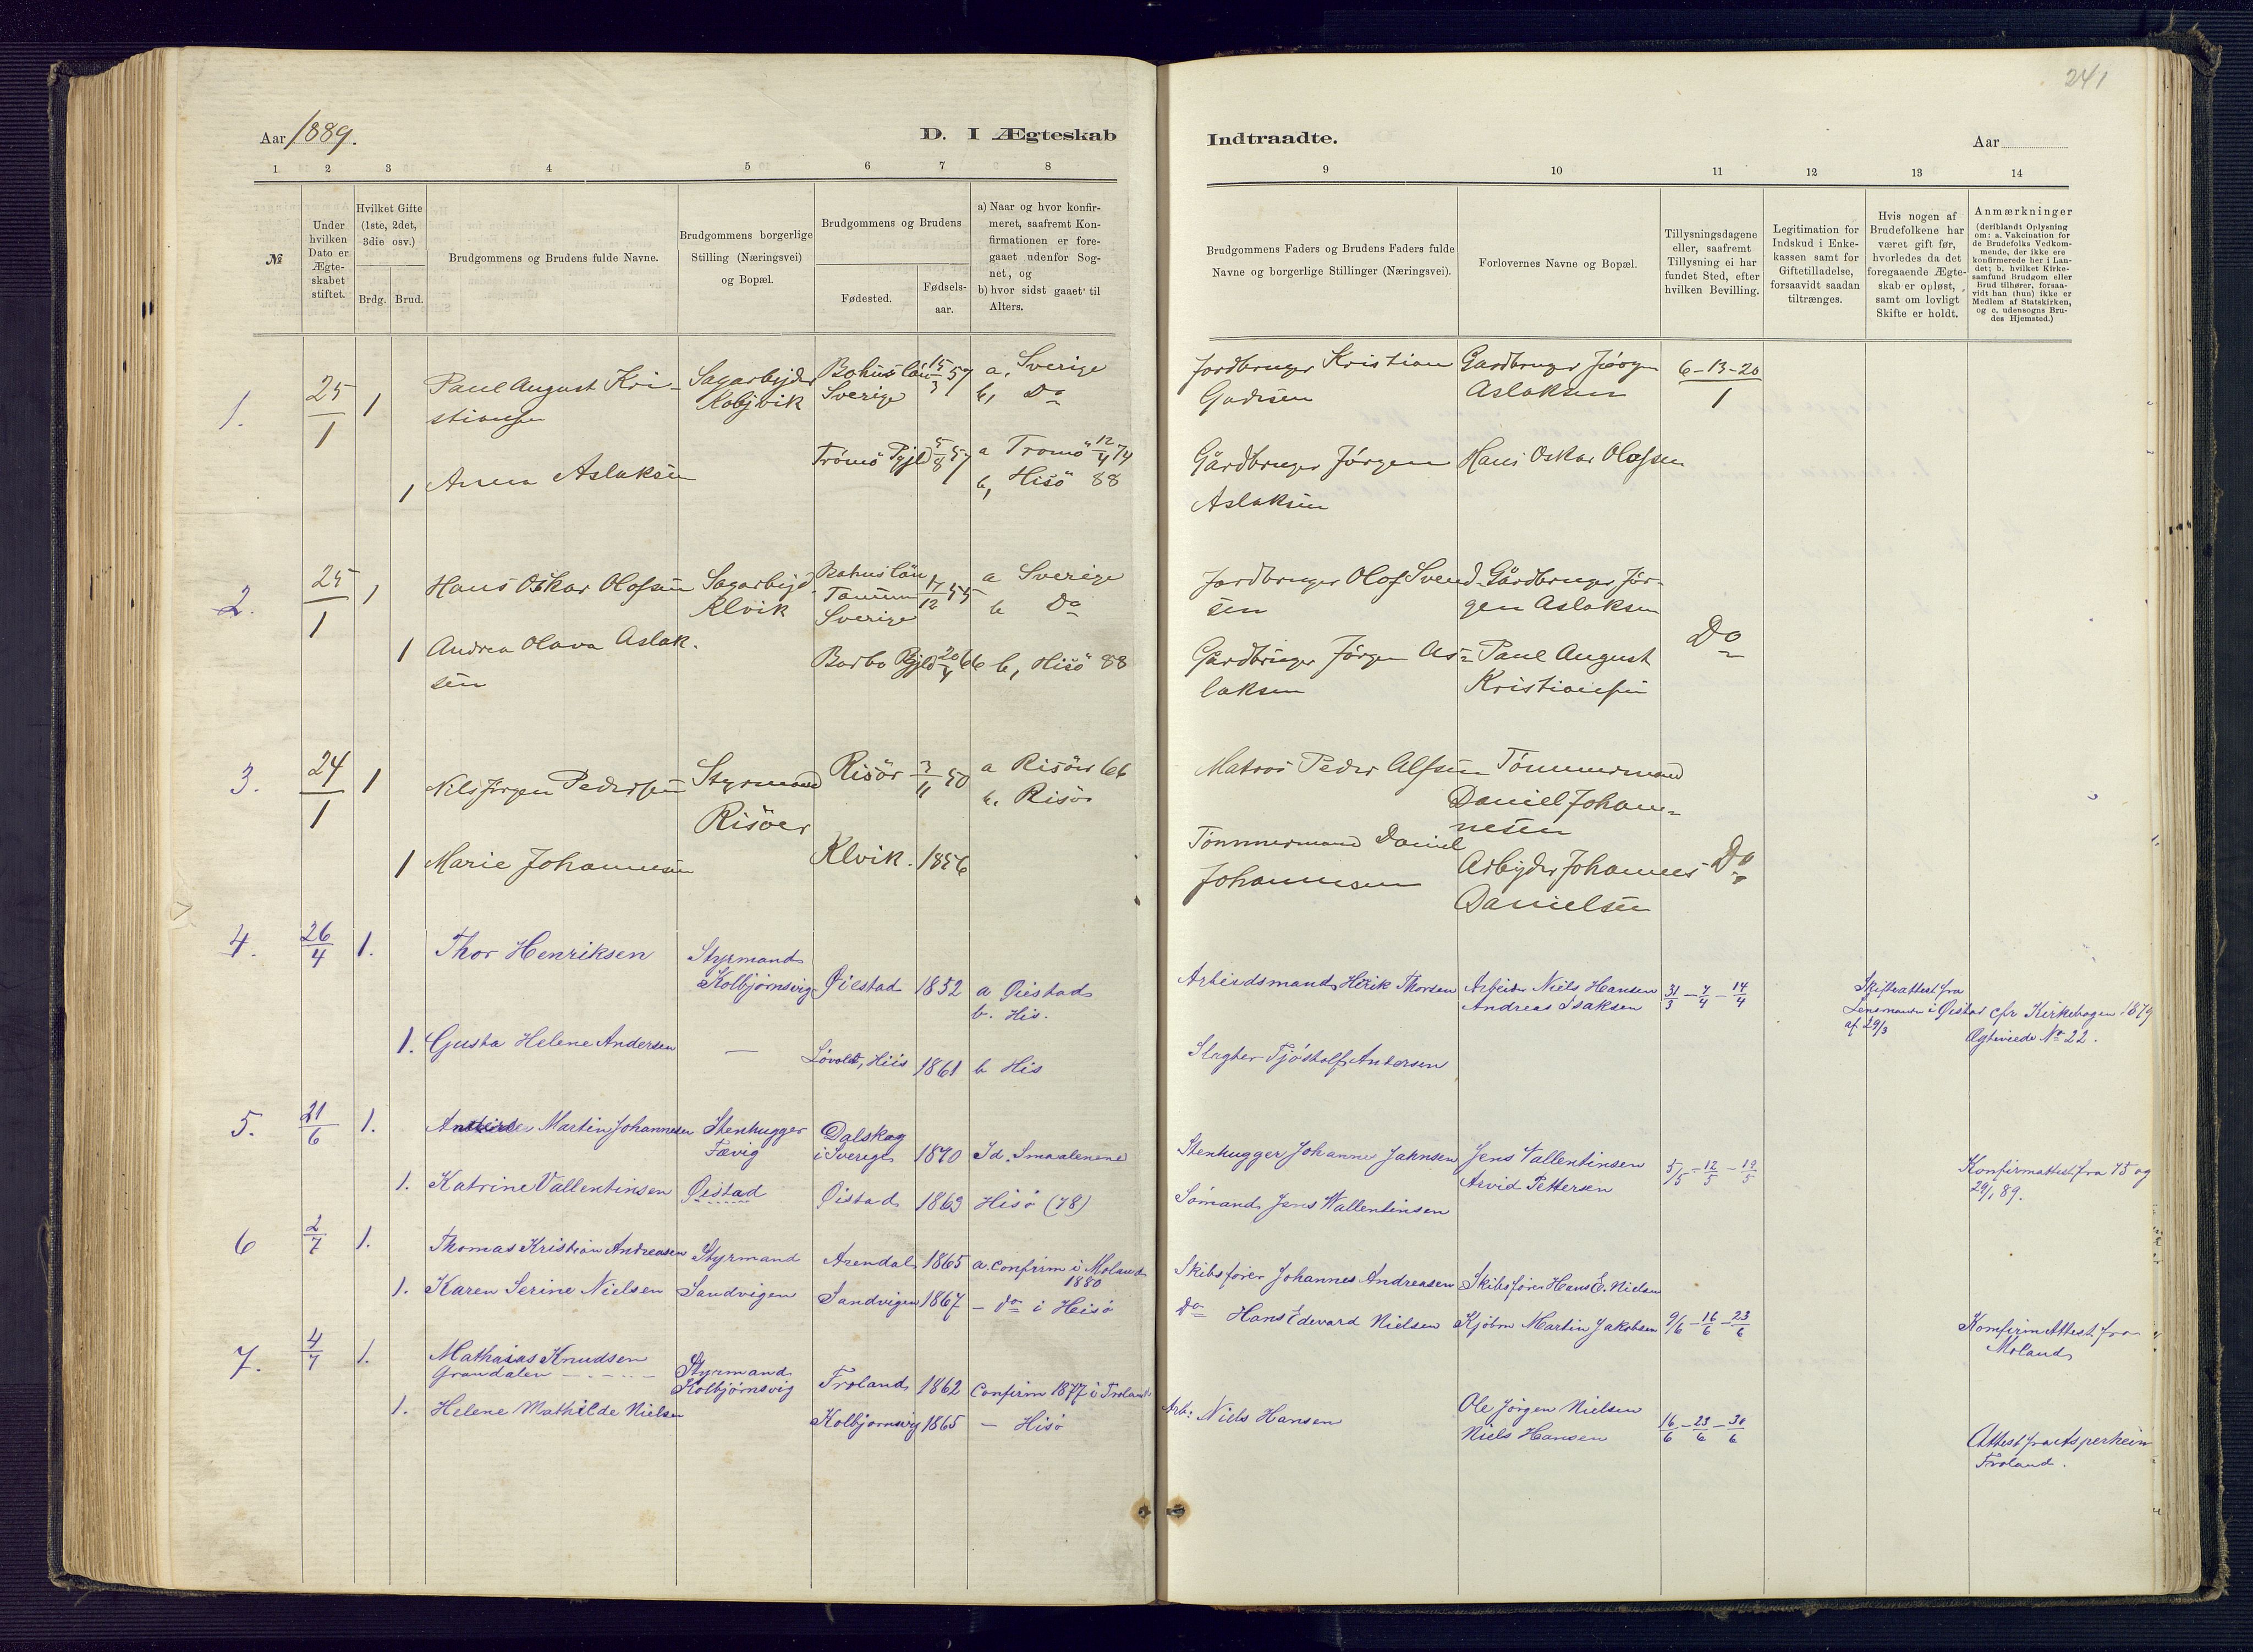 241
Aar 1889.
D. I Ægteskab
Indtraadte.
Aar
1 2 3 4 5 6 7 8
9 10 11 12 13 14
№
Under
hvilken
Dato er
Ægte-
skabet
stiftet.
Hvilket Gifte
(1ste, 2det,
3die osv.)
Brdg. Brud.
Brudgommens og Brudens fulde Navne.
Brudgommens borgerlige
Stilling (Næringsvei)
og Bopæl.
Brudgommens og Brudens
Fødested.
Fødsels-
aar.
a) Naar og hvor konfir-
meret, saafremt Kon-
firmationen er fore-
gaaet udenfor Sog-
net, og
b) hvor sidst gaaet til
Alters.
Brudgommens Faders og Brudens Faders fulde
Navne og borgerlige Stillinger (Næringsvei).
Forlovernes Navne og Bopæl.
Tillysningsdagene
eller, saafremt
Tillysning ei har
fundet Sted, efter
hvilken Bevilling.
Legitimation for
Indskud i Enke-
kassen samt for
Giftetilladelse,
forsaavidt saadan
tiltrænges.
Hvis nogen af
Brudefolkene har
været gift før,
hvorledes da det
foregaaende Ægte-
skab er opløst,
samt om lovligt
Skifte er holdt.
Anmærkninger
(deriblandt Oplysning
om: a. Vakcination for
de Brudefolks Vedkom-
mende, der ikke ere
konfirmerede her i Lan-
det; b. hvilket Kirke-
samfund Brudgom eller
Brud tilhører, forsaa-
vidt han (hun) ikke er
Medlem af Statskirken,
og c. udensogns Bru-
des Hjemsted.)
1. 25/1 1 Paul August Kri- Sagarbejder Bohuslän 15/3 57 a, Sverige
stiansen Kolbjvik Sverige b, Do
1 Anna Aslaksen Tromö Pgjld 5/8 57 a Tromö 12/4 74
b, Hisö 88
Jordbruger Kristian Gardbruger Jörgen 6-13-20/1
Aslaksen
Gårdbruger Jörgen Hans Oskar Olofsen
Aslaksen
2. 25/1 1 Hans Oskar Olofsen Sagarbejd. Bohuslän 17/12 55 a Sverige
Klvik Tanum b Do
Sverige
1 Andrea Olava Aslak- Barbo Pgjld 20/4 66 b, Hisö 88
sen
Jordbruger Olof Svend- Gårdbruger Jör-
sen gen Aslaksen
Do
Gardbruger Jörgen As- Paul August
laksen Kristiansen
3. 24/1 1 Nils Jörgen Pedersen Styrmand Risör 3/11 50 a Risöer 66
Risöer b. Risör
1 Marie Johannesen Klvik. 1856
Matros Peder Alfsen Tömmermand
Daniel Johan-
nesen
Tömmermand Daniel Arbejder Johannes Do
Johannesen Danielsen
4. 26/4 1. Thor Henriksen Styrmand
Kolbjørnsvig Øiestad 1852 a Øiestad
b. His.
1. Gusta Helene Andersen — Løvolt, Hiis 1861 b His
Arbeidsmand Henrik Thorsen Arbeider Niels Hansen 31/3 - 7/4 - 14/4 Skifteattest fra
Andreas Isaksen Lensmanden i Øistad cfr Kirkebogen 1879
af 29/3 Ægteviede No 22.
Slagter Tjøstolf Andersen
5. 21/6 1. Martin Johannesen Stenhugger Dalskog
Fævig i Sverige 1870 Id. Smaalenene
1. Katrine Vallentinsen Øistad Øistad 1863 Hisø (78)
Stenhugger Johannes Jahnsen Jens Vallentinsen 5/5 - 12/5 - 19/5 Konfirmattest fra 75 og
Arvid Pettersen 29/1 89.
Sømand Jens Wallentinsen
6 2/7 1. Thomas Kristian Andreasen Styrmand Arendal 1865 a. Confirm i Moland
1880
1. Karen Serine Nielsen Sandvigen Sandvigen 1867 - do i Hisø
Skibsfører Johannes Andreasen Skibsfører Hans E. Nielsen
Do Hans Edevard Nielsen Kjøbm Martin Jakobsen 9/6 - 16/6 - 23/6 KonfirmAttest fra
Moland
7. 4/7 1. Mathias Knudsen Styrmand
Grandalen Kolbjørnsvig Froland 1862 Confirm 1877 i Froland
1. Helene Mathilde Nielsen Kolbjørnsvig 1865 - Hisø
Arb: Niels Hansen Ole Jørgen Nielsen 16/6 - 23/6 - 30/6
Niels Hansen Attest fra
Froland.